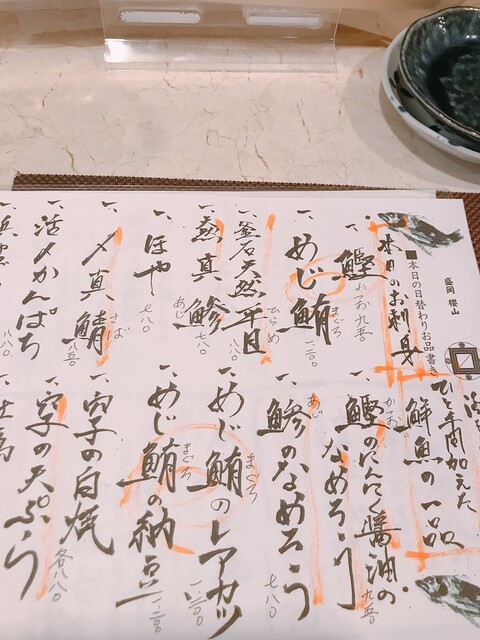 盛岡 櫻山
■本日の日替わりお品書き
本日のお刺身
一、鰹 かつお 九五〇
一、めじ鮪 まぐろ 一、二〇〇
一、釜石天然平目 ひらめ 一、一八〇
一、燕真鯵 あじ 八八〇
一、ほや 七八〇
一、〆真鯖 さば 八五〇
一、活〆かんぱち 一、一八〇
ひと手間加えた
鮮魚の一品
一、鰹のにんにく醤油の かつお
なめろう 九五〇
一、鯵のなめろう あじ 七八〇
一、めじ鮪のレアカツ まぐろ 一、二〇〇
一、めじ鮪の納豆 まぐろ 一、二〇〇
一、穴子の白焼
一、穴子の天ぷら 各八八〇